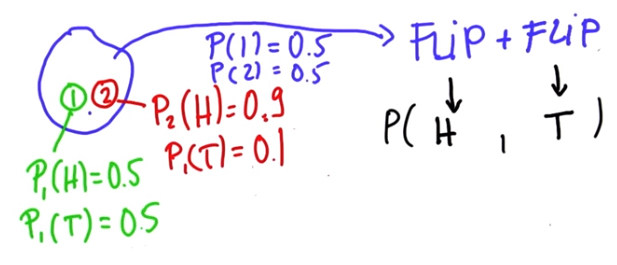 P(1) = 0.5
P(2) = 0.5
FLiP + FLiP
1
2
P₂(H) = 0.9
P₁(T) = 0.1
P( H , T )
P₁(H) = 0.5
P₁(T) = 0.5